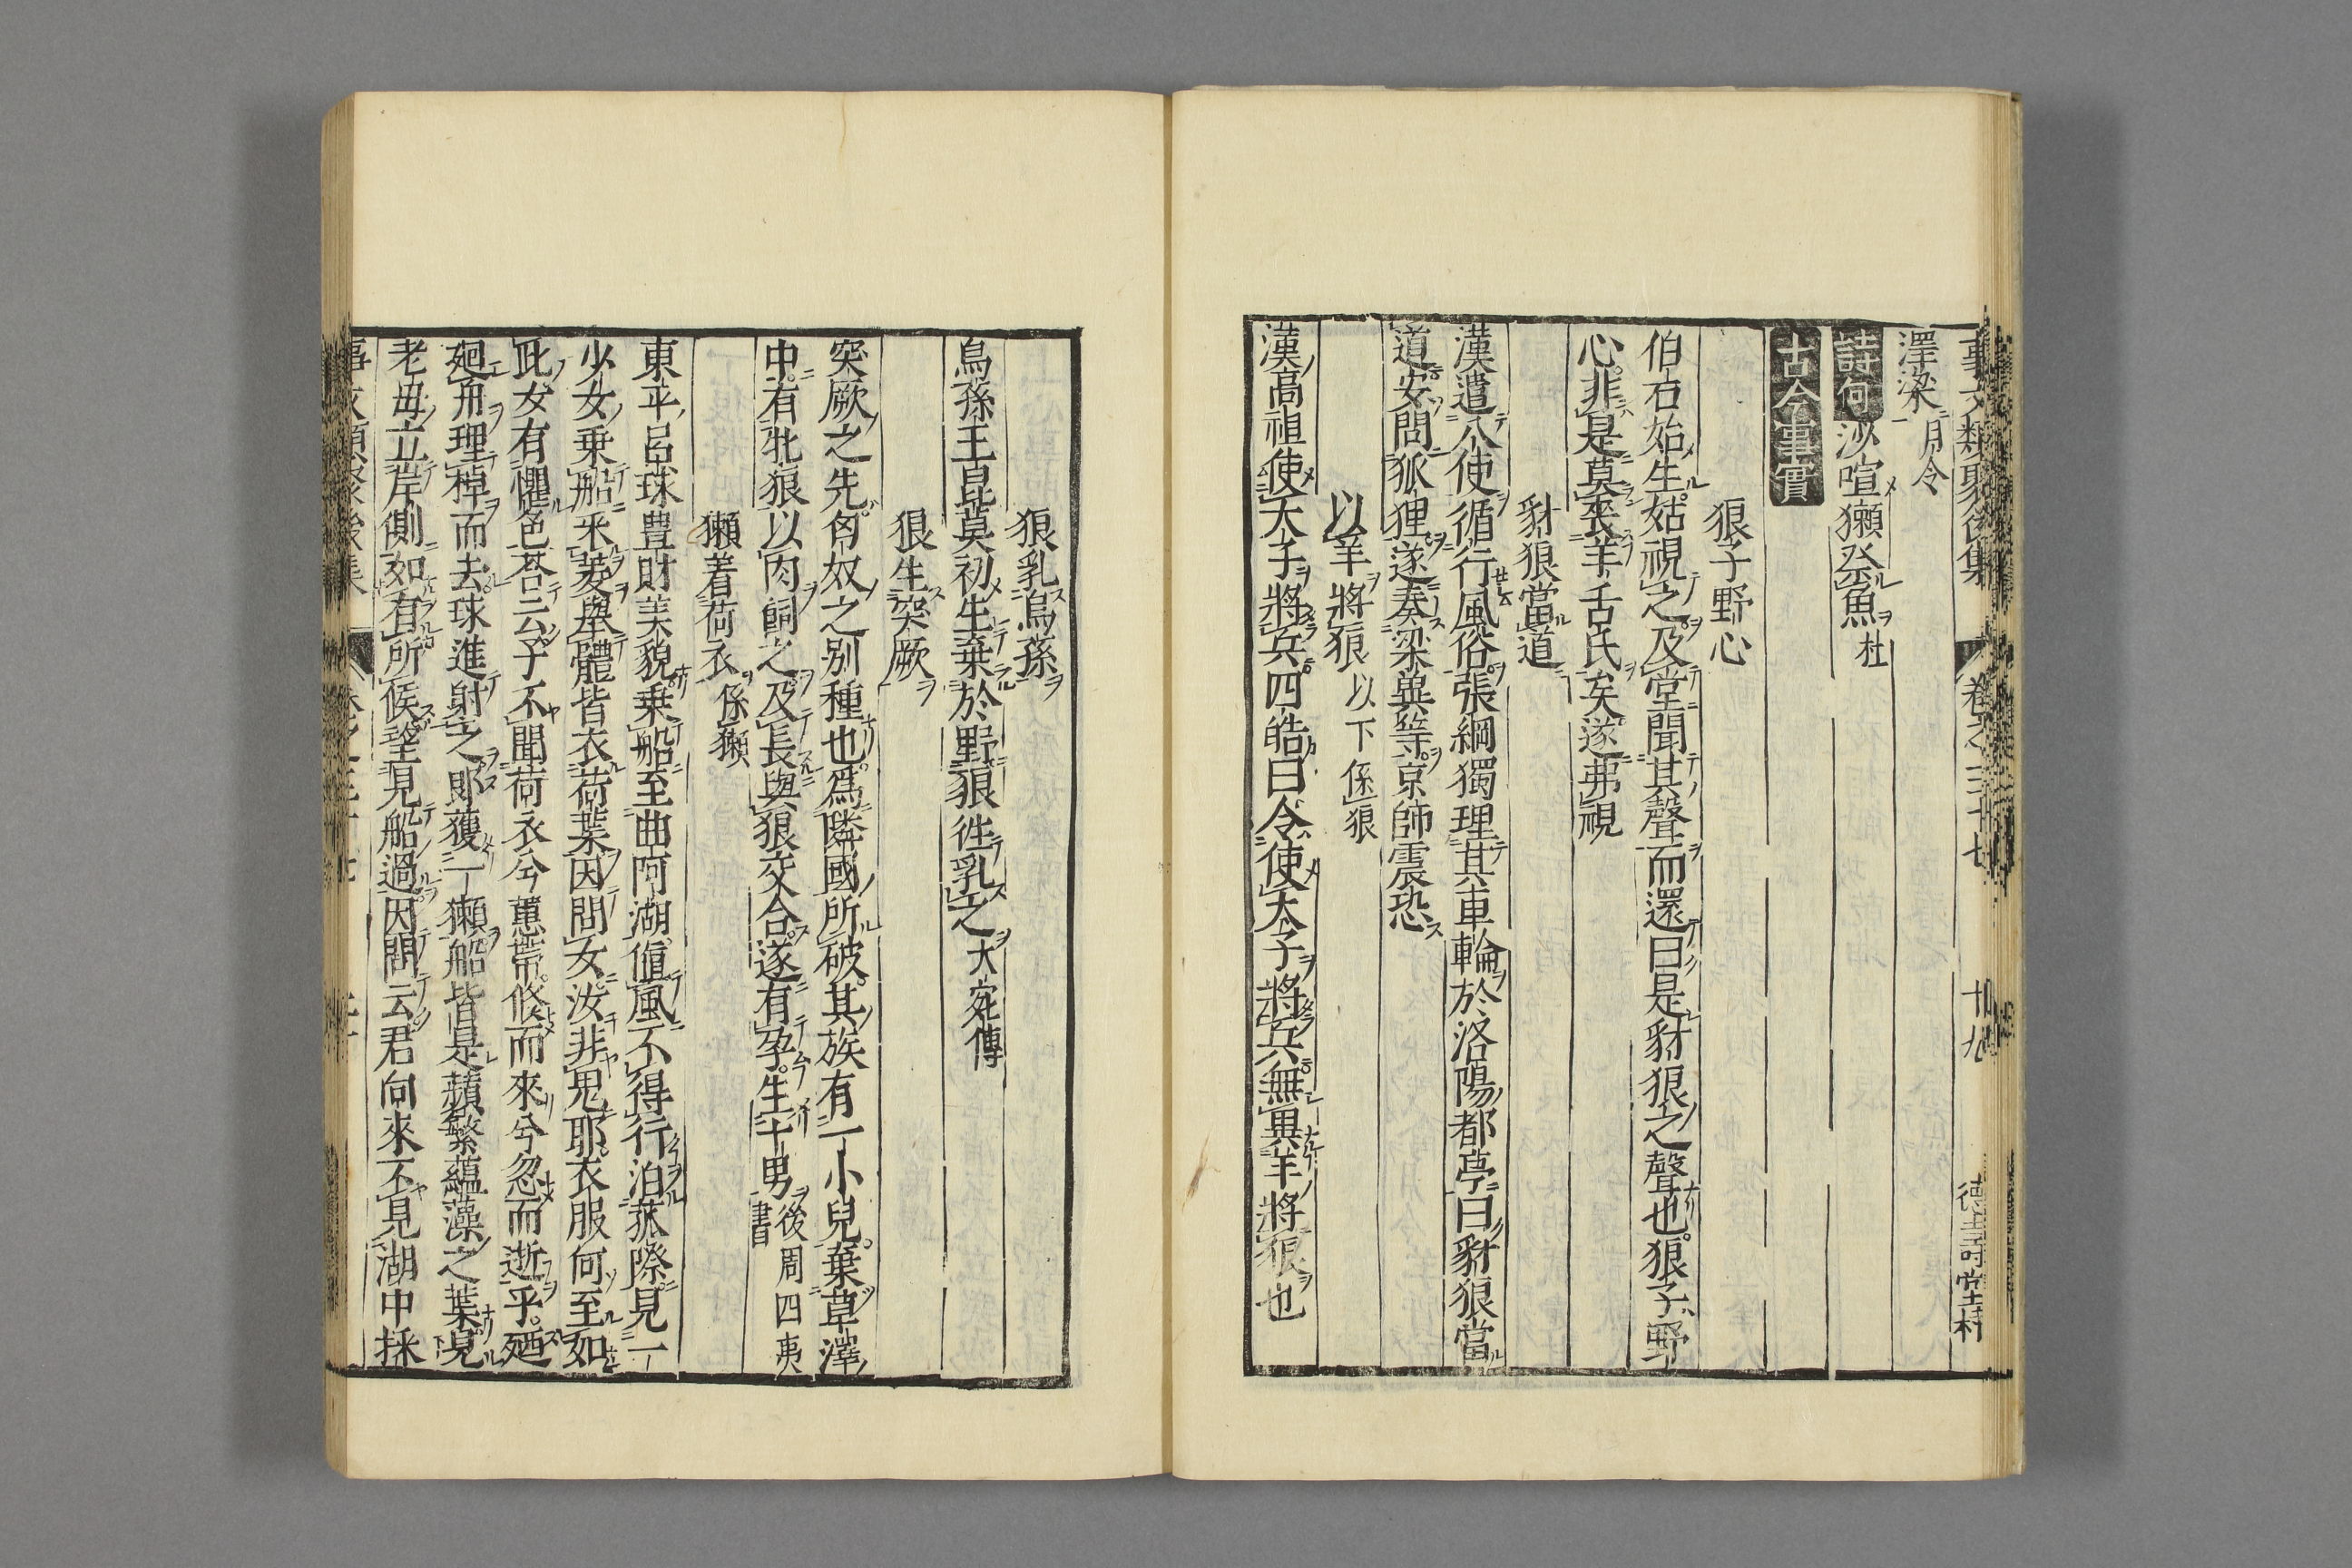 事文類聚後集 卷之三十七 廿九
澤梁月令
詩句 沙喧獺祭魚杜
古今事實
狼子野心
伯石始生姑視之及堂聞其聲而還曰是豺狼之聲也狼子野
心非是莫喪羊舌氏矣遂弗視
豺狼當道
漢遣八使循行風俗張綱獨理其車輪於洛陽都亭曰豺狼當
道安問狐狸遂奏梁兾等京師震恐
以羊將狼以下係狼
漢高祖使太子將兵四皓曰令使太子將兵無異羊將狼也
狼乳烏孫
烏孫王昆莫初生棄於野狼徃乳之大宛傳
狼生突厥
突厥之先匈奴之別種也爲隣國所破其族有一小兒棄草澤
中有牝狼以肉飼之及長與狼交合遂有孕生十男後周四夷
書
獺着荷衣係獺
東平呂球豊財美貌乗船至曲阿湖値風不得行泊菰際見一
少女乗船采菱舉體皆衣荷葉因問女汝非鬼耶衣服何至如
此女有懼色荅云子不聞荷衣兮蕙帶倏而來兮忽而逝乎廼
廻舟理棹而去球進射之即獲一獺船皆是蘋蘩蘊藻之葉見
老毋立岸側如有所候望見船過因問云君向來不見湖中採